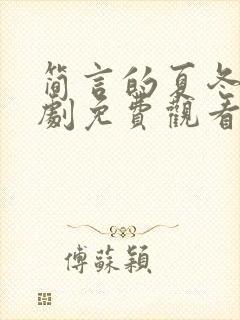 简言的夏冬
劇免費觀看
傅蘇穎